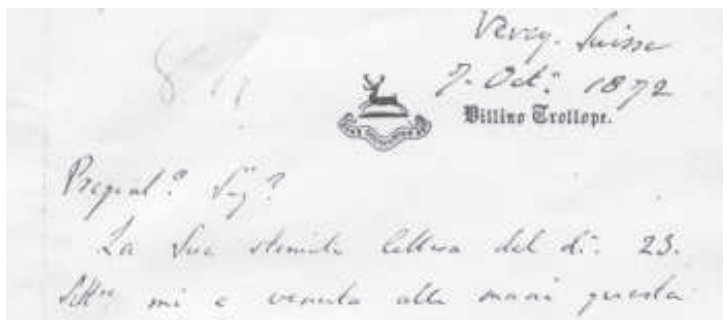 Vevey. Suisse
7. Octr. 1872
Villino Trollope.
Pregial? Sig?
La Sua stimata lettera del di. 23.
Settre mi e venuta alle mani questa